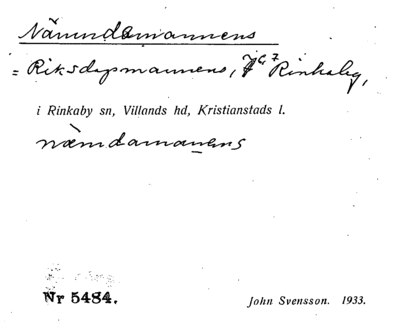 Nämndemannens
= Riksdagsmannens, Rinkaby,
i Rinkaby sn, Villands hd, Kristianstads l.
næmdamanens
Nr 5484.
John Svensson. 1933.